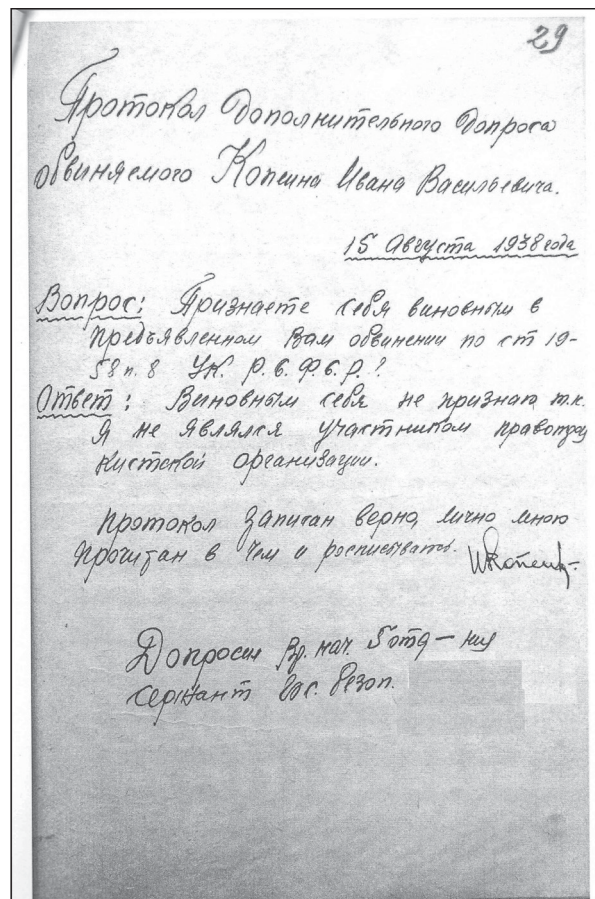 29
Протокол дополнительного допроса
обвиняемого Копсина Ивана Васильевича.
15 Августа 1938 года
Вопрос: Признаете себя виновным в
предъявленном Вам обвинении по ст 19-
58 п. 8 УК. Р.С.Ф.С.Р.?
Ответ: Виновным себя не признаю т.к.
Я не являлся участником правотроц
кистской организации.
Протокол записан верно, лично мною
прочитан в чем и
Допросил Вр. нач. 5 отд-ния
сержант гос. безоп.